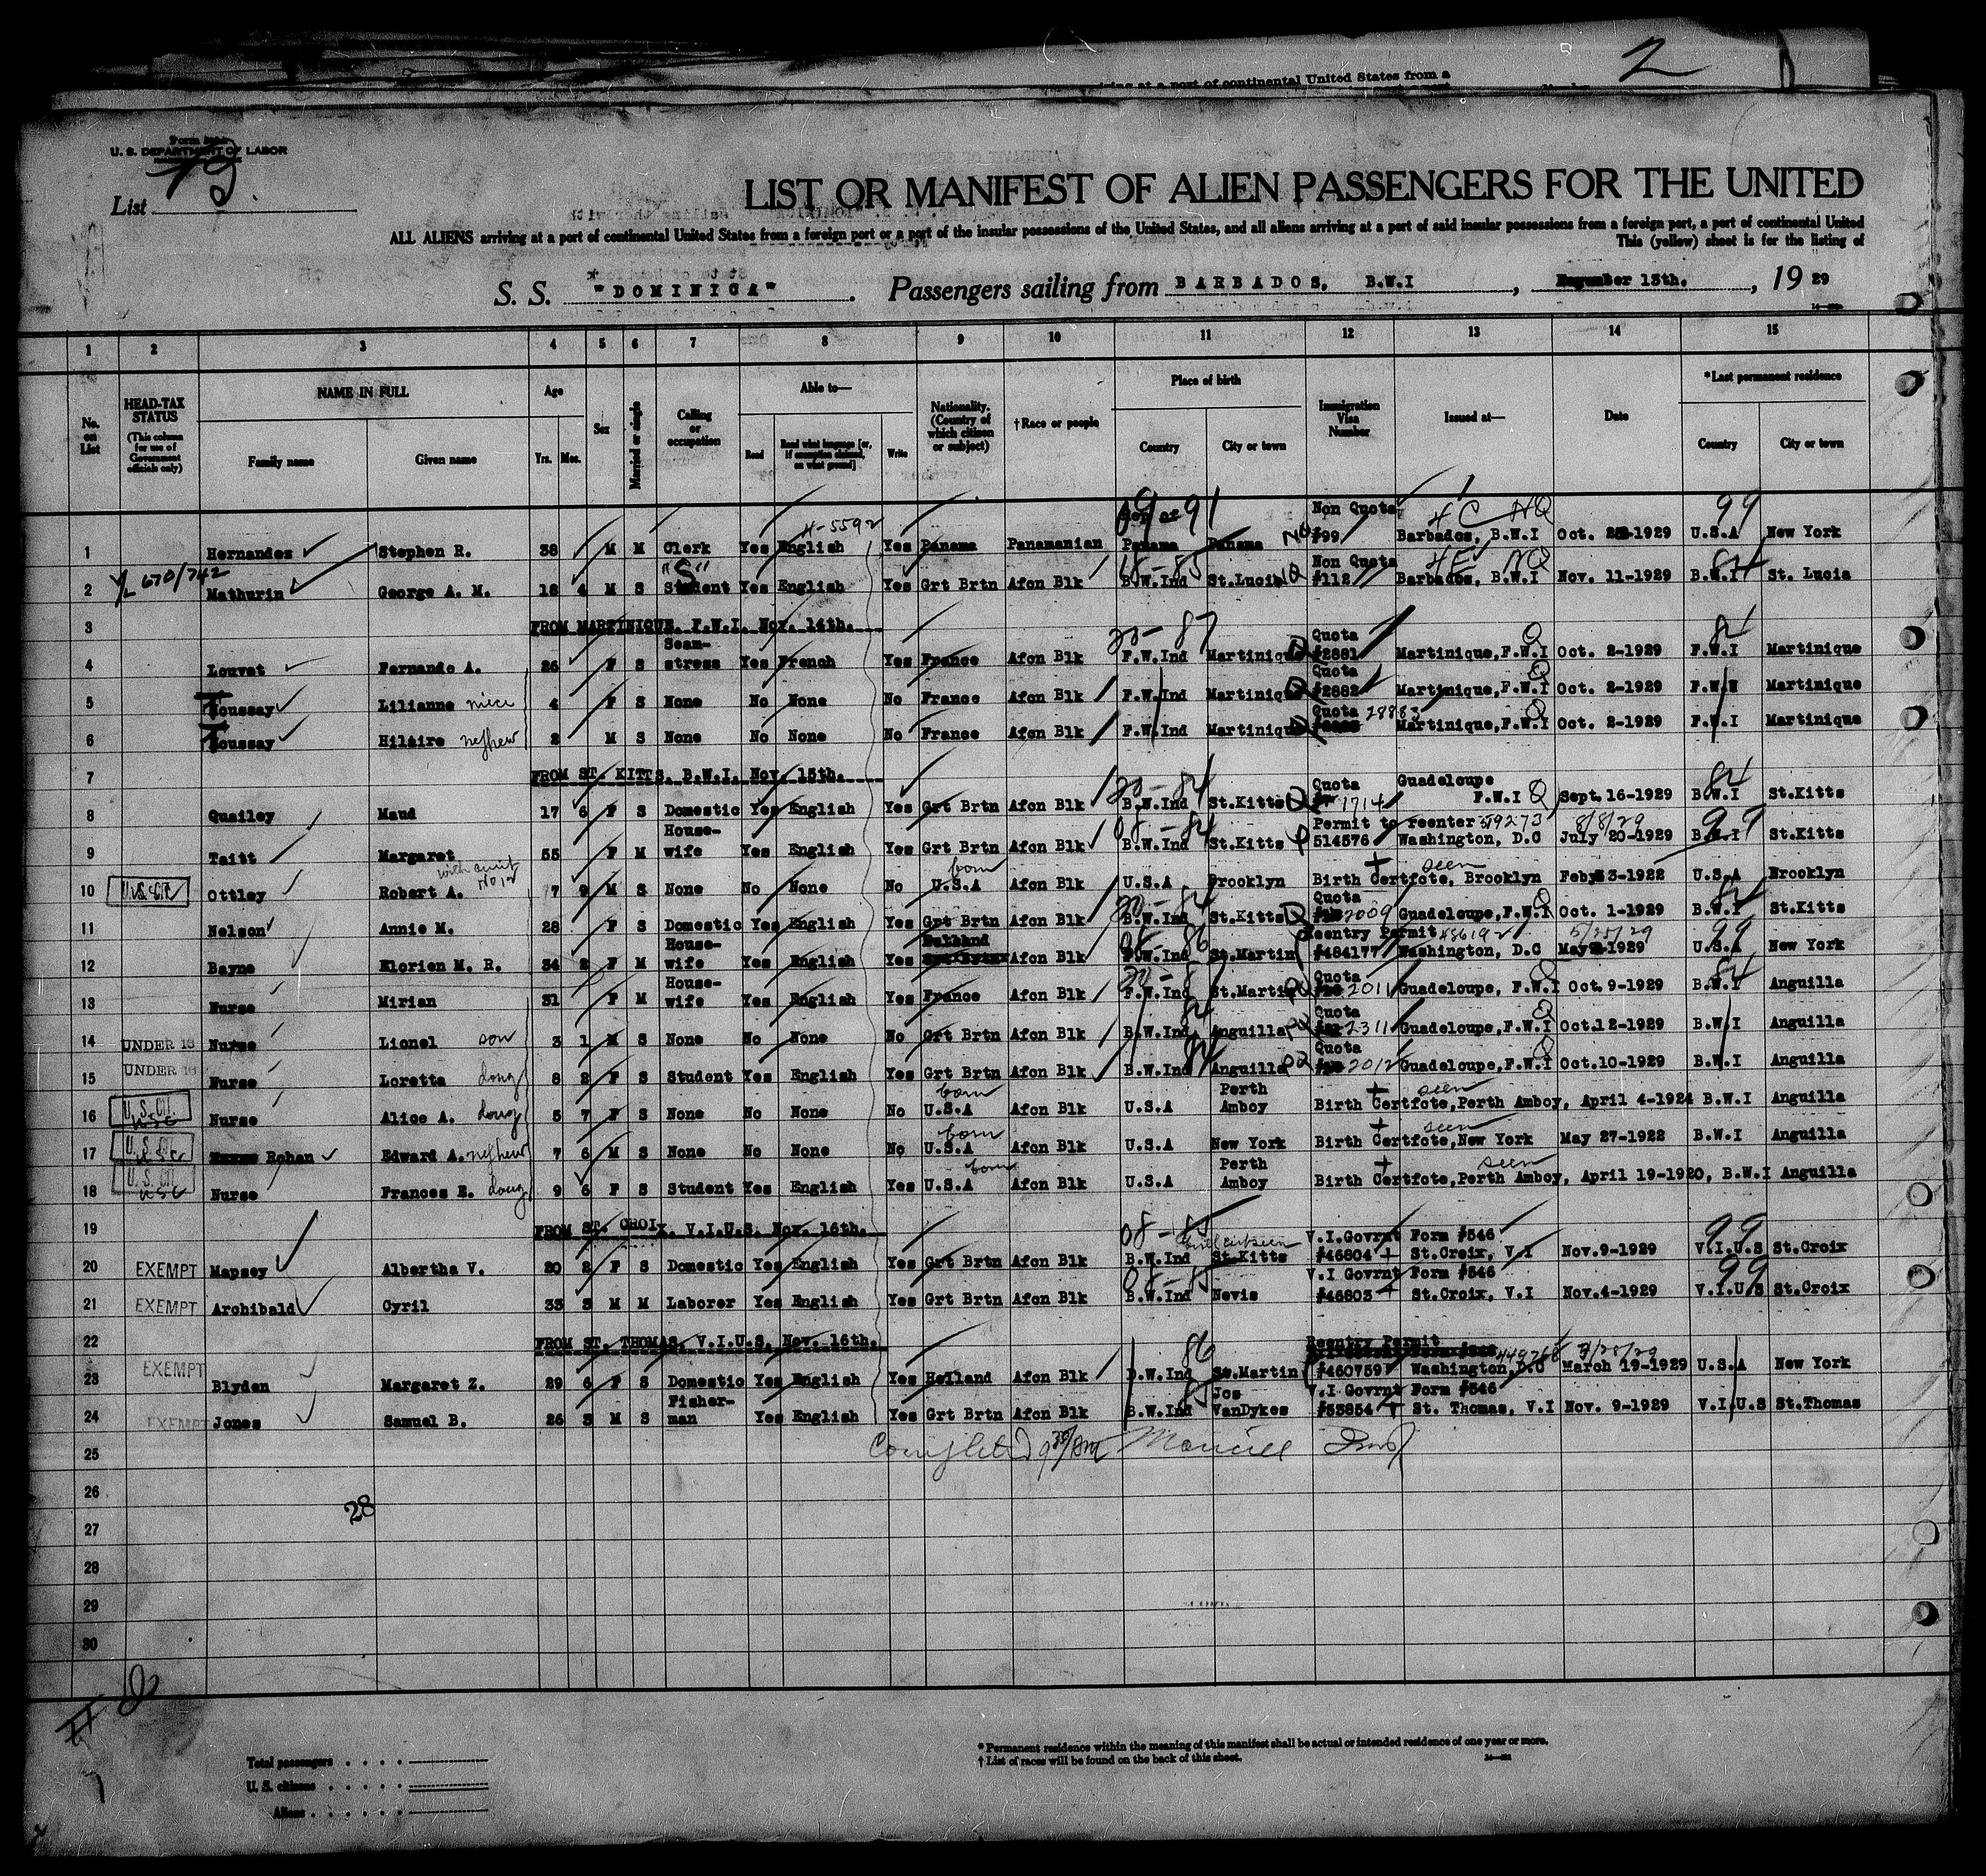 2
rising at a port of continental United States from a
U. S. DEPARTMENT OF LABOR
List 19.
LIST OR MANIFEST OF ALIEN PASSENGERS FOR THE UNITED
ALL ALIENS arriving at a port of continental United States from a foreign port or a port of the insular possessions of the United States, and all aliens arriving at a port of said insular possessions from a foreign port, a port of continental United
This (yellow) sheet is for the listing of
S. S. "DOMINICA". Passengers sailing from BARBADOS, B.W.I, 13th., 19 29
1 2 3 4 5 6 7 8 9 10 11 12 13 14 15
No. on List
HEAD-TAX STATUS (This column for use of Government officials only)
NAME IN FULL Family name Given name
Age Yrs. Mos.
Sex
Married or single
Calling or occupation
Able to— Read Read what language [or, if exemption claimed, on what ground] Write
Nationality. (Country of which citizen or subject)
†Race or people
Place of birth Country City or town
Immigration Visa Number
Issued at—
Date
*Last permanent residence Country City or town
1 Hernandez Stephen R. 38 M M Clerk Yes English Yes Panama Panamanian Panama Panama Non Quota #99 Barbados, B.W.I Oct. 1929 U.S.A New York
2 Mathurin George A. M. 18 4 M S Student Yes English Yes Grt Brtn Afcn Blk B.W.Ind St.Lucia Non Quota #112 Barbados, B.W.I Nov. 11-1929 B.W.I St. Lucia
3 FROM MARTINIQUE. F.W.I. Nov. 14th.
4 Louvet Fernande A. 26 F S Seamstress Yes French Yes France Afcn Blk F.W.Ind Martinique Quota #2881 Martinique,F.W.I Oct. 2-1929 F.W.I Martinique
5 Toussay Lilianne niece 4 F S None No None No France Afcn Blk F.W.Ind Martinique Quota #2882 Martinique,F.W.I Oct. 2-1929 Martinique
6 Toussay Hilaire nephew 2 M S None No None No France Afcn Blk F.W.Ind Martinique Quota 28883 Martinique,F.W.I Oct. 2-1929 F.W.I Martinique
7 FROM ST. KITTS. B.W.I. Nov. 15th.
8 Quailey Maud 17 6 F S Domestic Yes English Yes Grt Brtn Afcn Blk B.W.Ind St.Kitts Quota 1714 Guadeloupe F.W.I Sept. 16-1929 B.W.I St.Kitts
9 Taitt Margaret 55 F M House-wife Yes English Yes Grt Brtn Afcn Blk B.W.Ind St.Kitts Permit to reenter 514576 Washington, D.C 8/8/29 July 20-1929 B.W.I St.Kitts
10 Ottley Robert A. with aunt 7 9 M S None No None No born U.S.A Afcn Blk U.S.A Brooklyn Birth Certfcte, Brooklyn seen 3-1922 U.S.A Brooklyn
11 Nelson Annie M. 28 F S Domestic Yes English Yes Grt Brtn Afcn Blk B.W.Ind St.Kitts Quota 2009 Guadeloupe,F.W.I Oct. 1-1929 B.W.I St.Kitts
12 Bayne Elorien M. R. 34 2 F M House-wife Yes English Yes Holland Afcn Blk St.Martin Reentry Permit #484177 Washington, D.C May 1929 U.S.A New York
13 Nurse Mirian 31 F M House-wife Yes English Yes France Afcn Blk F.W.Ind St.Martin Quota 2011 Guadeloupe, F.W.I Oct. 9-1929 B.W.I Anguilla
14 UNDER 16 Nurse Lionel son 3 1 M S None No None No Grt Brtn Afcn Blk B.W.Ind Anguilla Quota 2311 Guadeloupe,F.W.I Oct.12-1929 B.W.I Anguilla
15 UNDER 16 Nurse Loretta daug 8 2 F S Student Yes English Yes Grt Brtn Afcn Blk B.W.Ind Anguilla Quota 2012 Guadeloupe,F.W.I Oct.10-1929 B.W.I Anguilla
16 Nurse Alice A. daug 5 7 F S None No None No born U.S.A Afcn Blk U.S.A Perth Amboy Birth Certfcte,Perth Amboy, seen April 4-1924 B.W.I Anguilla
17 Rohan Edward A. nephew 7 6 M S None No None No born U.S.A Afcn Blk U.S.A New York Birth Certfcte,New York seen May 27-1922 B.W.I Anguilla
18 Nurse Frances E. daug 9 6 F S Student Yes English Yes born U.S.A Afcn Blk U.S.A Perth Amboy Birth Certfcte,Perth Amboy, seen April 19-1920, B.W.I Anguilla
19 FROM ST. CROIX. V.I.U.S. Nov. 16th.
20 EXEMPT Mapsey Albertha V. 20 2 F S Domestic Yes English Yes Grt Brtn Afcn Blk B.W.Ind St.Kitts V.I.Govrnt Form #546 #46804 St.Croix, V.I Nov.9-1929 V.I.U.S St.Croix
21 EXEMPT Archibald Cyril 33 3 M M Laborer Yes English Yes Grt Brtn Afcn Blk B.W.Ind Nevis V.I Govrnt Form #546 #46803 St.Croix, V.I Nov.4-1929 V.I.U.S St.Croix
22 FROM ST. THOMAS. V.I.U.S. Nov. 16th.
23 EXEMPT Blyden Margaret Z. 29 6 F S Domestic Yes English Yes Holland Afcn Blk D.W.Ind St.Martin Reentry Permit #460759 Washington,D.C March 19-1929 U.S.A New York
24 EXEMPT Jones Samuel B. 26 3 M S Fisher-man Yes English Yes Grt Brtn Afcn Blk B.W.Ind Jos VanDykes V.I Govrnt Form #546 #53854 St. Thomas, V.I Nov. 9-1929 V.I.U.S St.Thomas
25
26
27 28
28
29
30
Total passengers
U. S. citizens
Aliens
* Permanent residence within the meaning of this manifest shall be actual or intended residence of one year or more.
† List of races will be found on the back of this sheet.